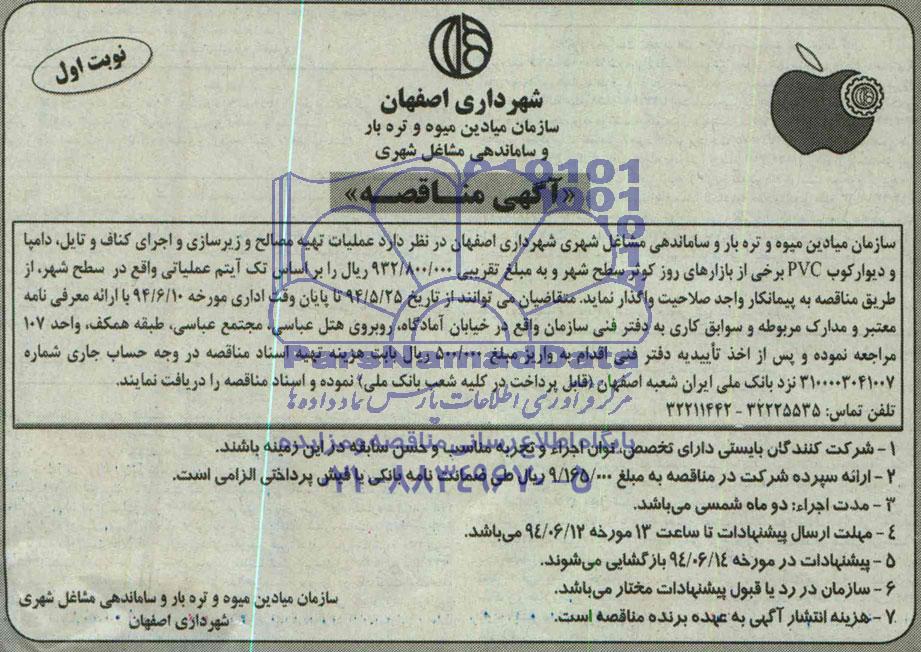 نوبت اول
شهرداری اصفهان
سازمان میادین میوه و تره بار
و ساماندهی مشاغل شهری
«آگهی مناقصه»
سازمان میادین میوه و تره بار و ساماندهی مشاغل شهری شهرداری اصفهان در نظر دارد عملیات تهیه مصالح و زیرسازی و اجرای کناف و تایل، دامپا
و دیوارکوب PVC برخی از بازارهای روز کوثر سطح شهر و به مبلغ تقریبی ۹۳۲/۸۰۰/۰۰۰ ریال را بر اساس تک آیتم عملیاتی واقع در سطح شهر، از
طریق مناقصه به پیمانکار واجد صلاحیت واگذار نماید. متقاضیان می توانند از تاریخ ۹۴/۵/۲۵ تا پایان وقت اداری مورخه ۹۴/۶/۱۰ با ارائه معرفی نامه
معتبر و مدارک مربوطه و سوابق کاری به دفتر فنی سازمان واقع در خیابان آمادگاه، روبروی هتل عباسی، مجتمع عباسی، طبقه همکف، واحد ۱۰۷
مراجعه نموده و پس از اخذ تأییدیه دفتر فنی اقدام به واریز مبلغ ۵۰۰/۰۰۰ ریال بابت هزینه تهیه اسناد مناقصه در وجه حساب جاری شماره
۳۱۰۰۰۰۳۰۴۱۰۰۷ نزد بانک ملی ایران شعبه اصفهان (قابل پرداخت در کلیه شعب بانک ملی) نموده و اسناد مناقصه را دریافت نمایند.
تلفن تماس: ۳۲۲۲۵۵۳۵ - ۳۲۲۱۱۴۴۲
۱ - شرکت کنندگان بایستی دارای تخصص، توان اجراء و تجربه مناسب و حسن سابقه در این زمینه باشند.
۲ - ارائه سپرده شرکت در مناقصه به مبلغ ۹/۱۶۵/۰۰۰ ریال طی ضمانت نامه بانکی یا فیش پرداختی الزامی است.
۳ - مدت اجراء: دو ماه شمسی می‌باشد.
۴ - مهلت ارسال پیشنهادات تا ساعت ۱۳ مورخه ۹۴/۰۶/۱۲ می‌باشد.
۵ - پیشنهادات در مورخه ۹۴/۰۶/۱۴ بازگشایی می‌شوند.
۶ - سازمان در رد یا قبول پیشنهادات مختار می‌باشد.
۷ - هزینه انتشار آگهی به عهده برنده مناقصه است.
سازمان میادین میوه و تره بار و ساماندهی مشاغل شهری
شهرداری اصفهان
ParsNamadData
مرکز فرآوری اطلاعات پارس نماد داده‌ها
پایگاه اطلاع رسانی مناقصه و مزایده
۰۲۱-۸۸۳۴۹۶۷۰-۵